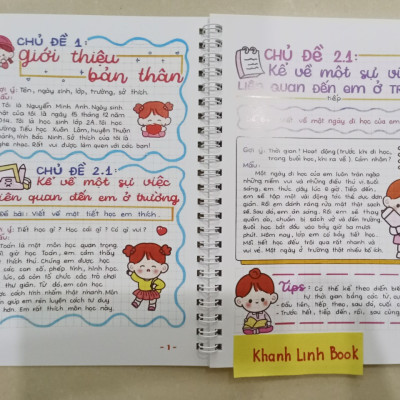 CHỦ ĐỀ 1:
giới thiệu
bản thân
Gợi ý: Tên, ngày sinh, lớp, trường, sở thích.
Tôi là Nguyễn Minh Anh. Ngày sinh
nhật của tôi là ngày 15 tháng 12 năm
Tôi là học sinh lớp 2A. Tôi học
trường Tiểu học Xuân Lâm, huyện Thuận
Thành, tỉnh Bắc Ninh. Sở thích của tôi là
ca hát. Rất vui được làm quen với các bạn!
CHỦ ĐỀ 2.1:
Kể về một sự việc
liên quan đến em ở trường
Đề bài: Viết về một tiết học em thích.
Gợi ý: Tiết học gì? Học cái gì? Có gì vui?
Toán là một môn học quan trọng.
Mỗi giờ học Toán, em cảm thấy
thích thú. Chúng em được học
các con số, phép tính, hình học.
cô còn tổ chức các trò chơi
thư giãn. Từ đó, em còn học
được cách tính nhẩm thật nhanh. Môn
Toán giúp em rèn luyện cách tư duy
hơn. Em rất thích môn học này.
- 1 -
CHỦ ĐỀ 2.1:
Kể về một sự việc
liên quan đến em ở
tiếp
Viết về một ngày đi học của em
Gợi ý: Thời gian? Hoạt động (trước khi đi học,
trong buổi học, khi ra về). Cảm nhận?
Mẫu:
Một ngày đi học của em luôn tràn ngập
những niềm vui và những điều thú vị. Buổi
sáng, em thức dậy lúc 6 giờ. Tiếp đến,
em sẽ tập một vài động tác thể dục đơn
giản. Rồi em đánh răng rửa mặt thật sạch
sẽ. Sau đó, em ăn sáng. Rồi em sẽ thay
quần áo, chuẩn bị sách vở và đến trường.
Buổi học bắt đầu vào bảy giờ ba mươi
phút. Hôm nay, lớp em có bảy tiết học.
Mỗi tiết học đều trôi qua rất nhanh và
vui vẻ. Một ngày ở trường thật nhiều bổ ích.
Tips: Có thể kể theo diễn biến
từ thời gian bằng các từ:
- Đầu tiên, tiếp theo, sau đó, cuối
- Trước hết, tiếp đến, rồi, sau cùng
Khanh Linh Book